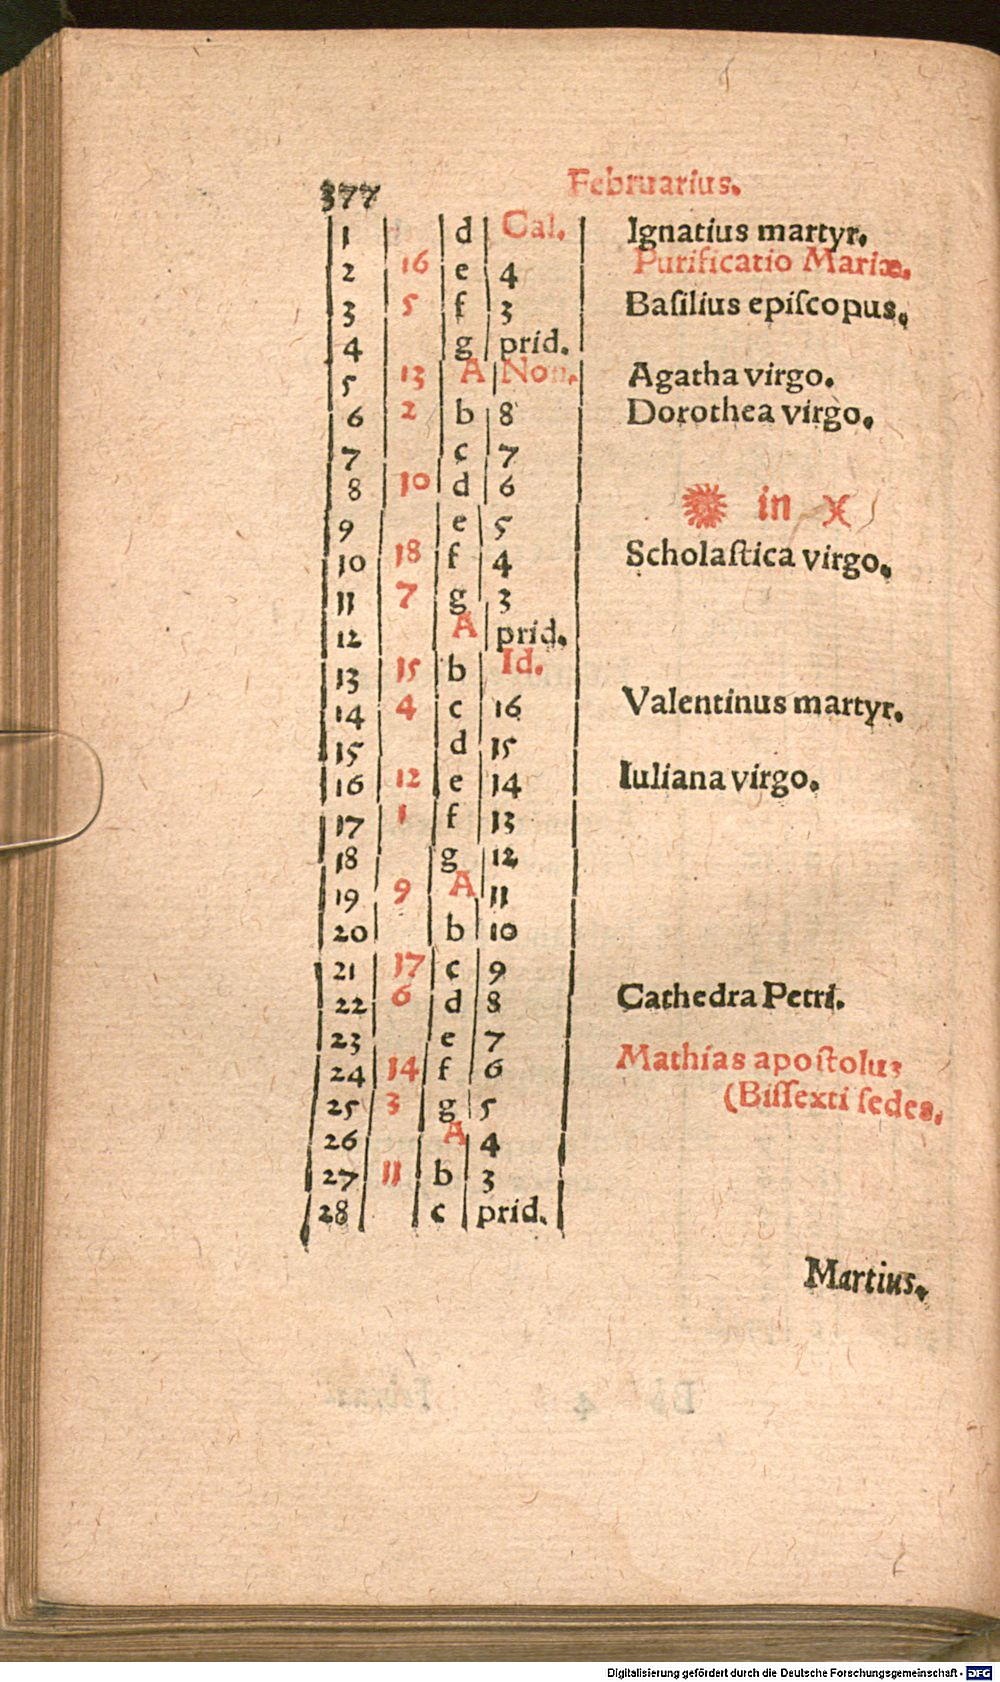 377 Februarius.
1 d Cal. Ignatius martyr.
2 16 e 4 Purificatio Mariæ.
3 5 f 3 Basilius episcopus.
4 g prid.
5 13 A Non. Agatha virgo.
6 2 b 8 Dorothea virgo.
7 c 7
8 10 d 6
9 e 5 ☀ in ♓
10 18 f 4 Scholastica virgo.
11 7 g 3
12 A prid.
13 15 b Id.
14 4 c 16 Valentinus martyr.
15 d 15
16 12 e 14 Iuliana virgo.
17 1 f 13
18 g 12
19 9 A 11
20 b 10
21 17 c 9
22 6 d 8 Cathedra Petri.
23 e 7
24 14 f 6 Mathias apostolus
25 3 g 5 (Bissexti sedes.
26 A 4
27 11 b 3
28 c prid.
Martius.
Digitalisierung gefördert durch die Deutsche Forschungsgemeinschaft - DFG